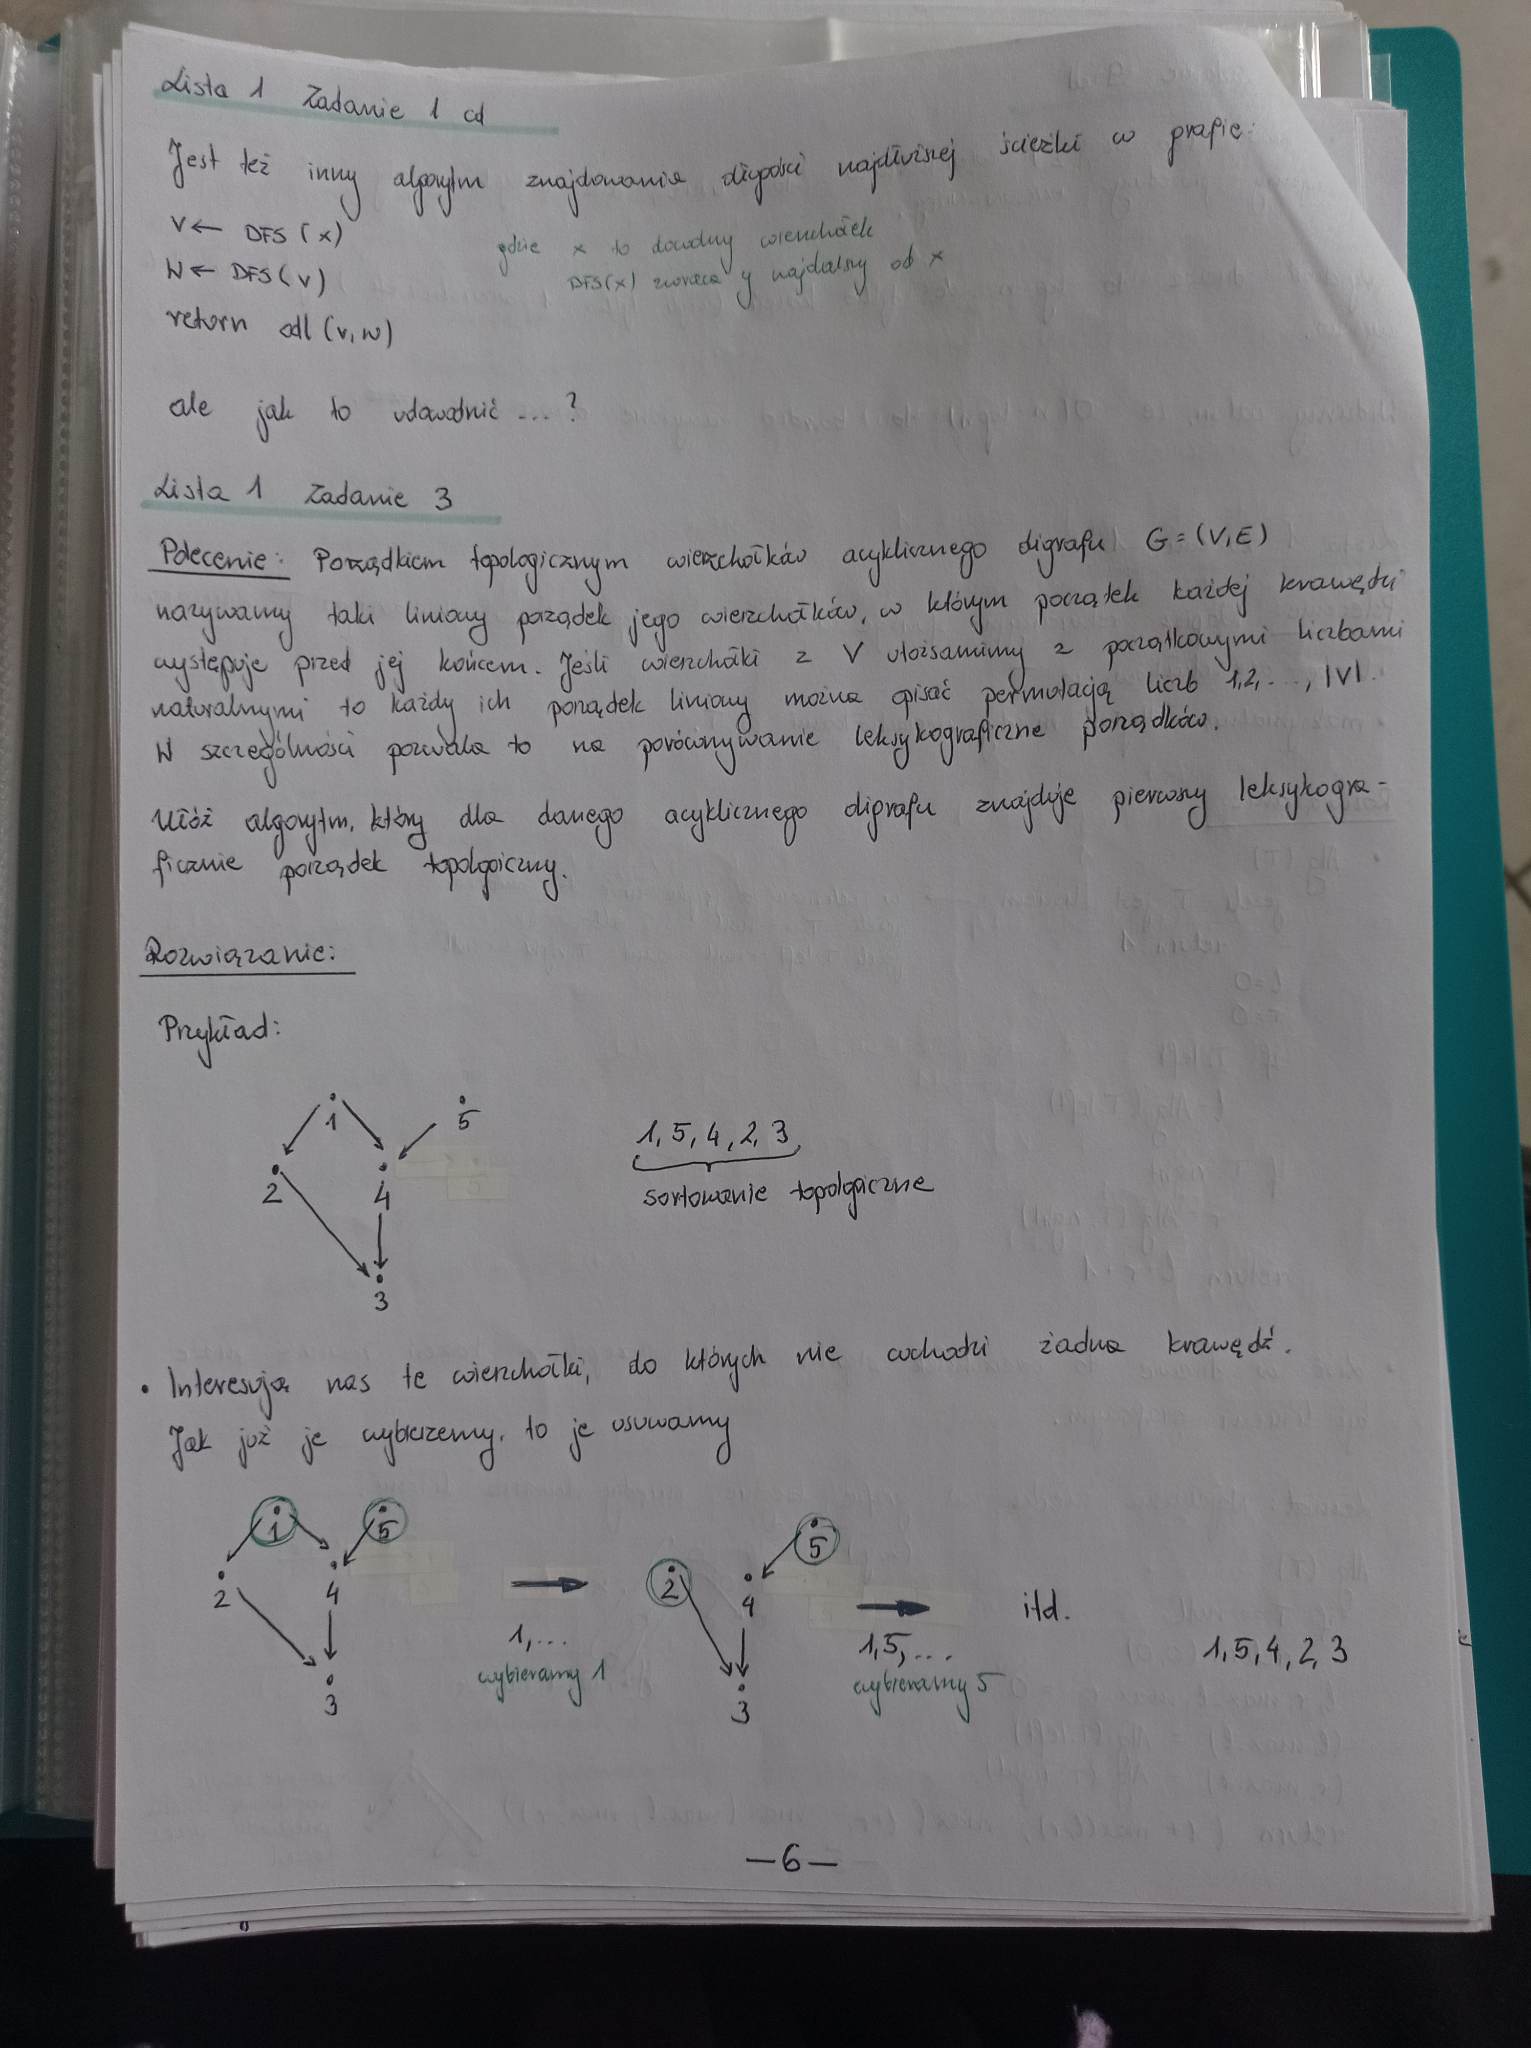 Lista 1 Zadanie 1 cd
Jest też inny algorytm znajdowania długości najdłuższej ścieżki w grafie:
V ← DFS (x)
gdzie x to dowolny wierzchołek
W ← DFS (v)
DFS(x) zwraca y najdalszy od x
return odl (v, w)
ale jak to udowodnić ... ?
Lista 1 Zadanie 3
Polecenie: Porządkiem topologicznym wierzchołków acyklicznego digrafu G = (V, E)
nazywamy taki liniowy porządek jego wierzchołków, w którym początek każdej krawędzi
występuje przed jej końcem. Jeśli wierzchołki z V utożsamimy z początkowymi liczbami
naturalnymi to każdy ich porządek liniowy można opisać permutacją liczb 1,2, ..., |V|.
W szczególności pozwala to na porównywanie leksykograficzne porządków.
Ułóż algorytm, który dla danego acyklicznego digrafu znajduje pierwszy leksykogra-
ficznie porządek topologiczny.
Rozwiązanie:
Przykład:
1
5
2
4
3
1, 5, 4, 2, 3
sortowanie topologiczne
• Interesują nas te wierzchołki, do których nie wchodzi żadna krawędź.
Jak już je wybierzemy, to je usuwamy
1
5
2
4
3
1, ...
wybieramy 1
5
2
4
3
1, 5, ...
wybieramy 5
itd.
1, 5, 4, 2, 3
— 6 —